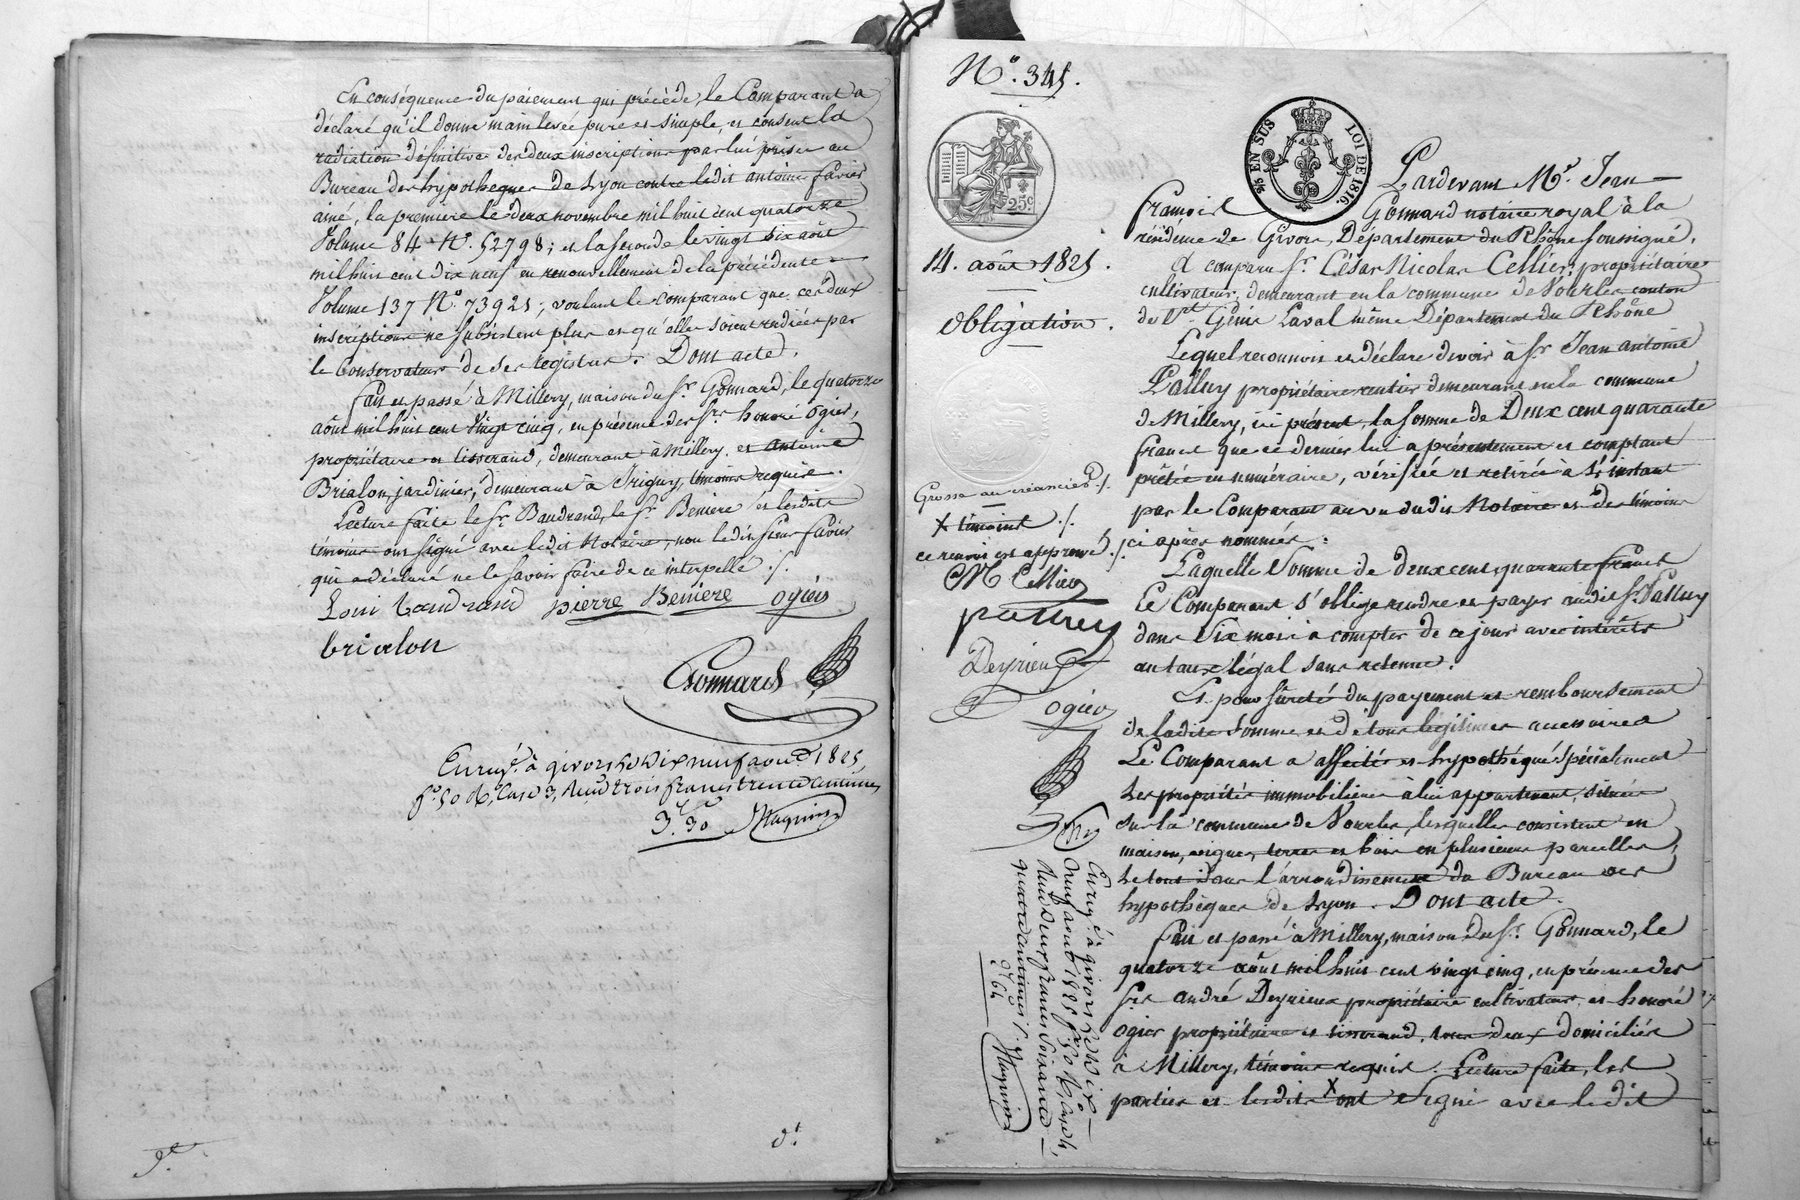 En conséquence du paiement qui précède, le Comparant a
déclaré qu'il donne main levée pure et simple, et consent la
radiation définitive des deux inscriptions par lui prises au
Bureau des hypothèques de Lyon contre ledit antoine favier
ainé, la première le deux novembre mil huit cent quatorze
Volume 84 N.º 52798; et la seconde le vingt six août
mil huit cent dix neuf en renouvellement de la précédente
Volume 137 N.º 73921; voulant le Comparant que ces deux
inscriptions ne subsistent plus et qu'elles soient radiées par
le Conservateur de ses registres. Dont acte.
Fait et passé à Millery, maison du S.r Gonnard, le quatorze
août mil huit cent vingt cinq, en présence des S.rs honoré Ogier,
propriétaire et tisserand, demeurant à Millery, et antoine
Brialon, jardinier, demeurant à Irigny, témoins requis.
Lecture faite le S.r Baudrand, le S.r Benière et lesdits
témoins ont signé avec ledit Notaire, non ledit sieur favier
qui a déclaré ne le savoir faire de ce interpellé ./.
Loui Baudrand pierre Beniere ogier
brialon
Gonnard
Enreg.é à givors le dix neuf aoud 1825,
f.º 50 R.º Case 3, Reçu trois francs trente centimes
3.f 30
N.º 345.
25.c
3/5 EN SUS LOI DE 1816.
14. août 1825.
Obligation.
Grosse au créancier ./.
X témoins ./.
ce renvoi est approuvé ./.
Cellier
palluy
Deyrieux
ogier
Enreg.é à givors le dix
neuf aoud 1825 f.º 50 R.º Case 4,
Reçu deux francs soixante
quatre centimes ./.
2.f 64
Pardevant M.e Jean
François Gonnard notaire royal à la
résidence de Givors, Département du Rhône soussigné,
A comparu S.r César Nicolas Cellier, propriétaire
cultivateur, demeurant en la commune de Vourles canton
de S.t Genis Laval même Département du Rhône
Lequel reconnoit et déclare devoir à S.r Jean antoine
Palluy propriétaire rentier demeurant en la commune
de Millery, ici présent, la somme de Deux cent quarante
francs que ce dernier lui a présentement et comptant
prêtée en numéraire, vérifiée et retirée à l'instant
par le Comparant au vu dudit Notaire et des témoins
ci après nommés.
Laquelle somme de deux cent quarante francs
Le Comparant s'oblige rendre et payer audit S.r Palluy
dans six mois à compter de ce jour avec intérêts
au taux légal sans retenue.
Et pour sûreté du payement et remboursement
de ladite somme et de tous légitimes accessoires
Le Comparant a affecté et hypothéqué spécialement
les propriétés immobilières à lui appartenant, situées
sur la commune de Vourles, lesquelles consistent en
maison, vignes, terres et bois en plusieurs parcelles,
le tout dans l'arrondissement du Bureau des
hypothèques de Lyon. Dont acte.
Fait et passé à Millery, maison du S.r Gonnard, le
quatorze août mil huit cent vingt cinq, en présence des
S.rs andré Deyrieux propriétaire cultivateur, et honoré
Ogier propriétaire et tisserand, tous deux domiciliés
à Millery, témoins requis. Lecture faite, les
parties et lesdits X ont signé avec ledit